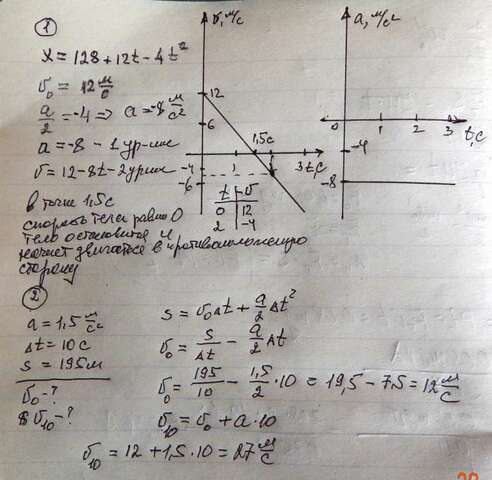 1
x = 128 + 12t - 4t²
v₀ = 12 м/с
a/2 = -4 => a = -8 м/с²
a = -8 - 1 ур-ние
v = 12 - 8t - 2 урние
в точке 1,5с
скорость тела равно 0
тело остановится и
начнет двигаться в противоположную
сторону
v, м/с
12
6
-4
-6
1
1,5с
3 t, с
t | v
0 | 12
2 | -4
a, м/с²
0 1 2 3 t, с
-4
-8
2
a = 1,5 м/с²
Δt = 10 с
s = 195 м
v₀ - ?
v₁₀ - ?
s = v₀Δt + a/2 Δt²
v₀ = s/Δt - a/2 Δt
v₀ = 195/10 - 1,5/2 · 10 = 19,5 - 7,5 = 12 м/с
v₁₀ = v₀ + a · 10
v₁₀ = 12 + 1,5 · 10 = 27 м/с